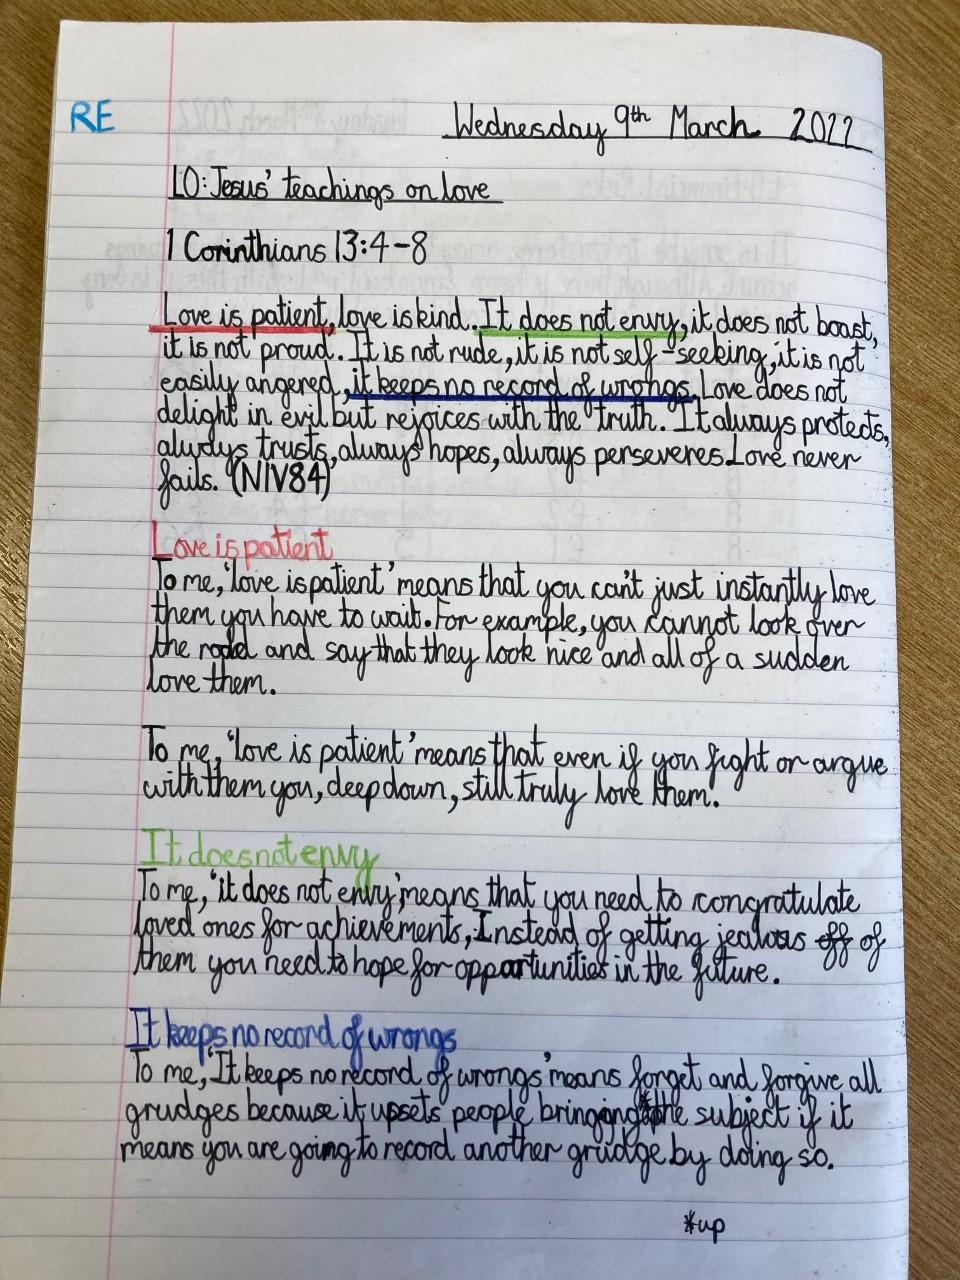 RE
Wednesday 9th March 2022
LO: Jesus' teachings on love
1 Corinthians 13:4-8
Love is patient, love is kind. It does not envy, it does not boast,
it is not proud. It is not rude, it is not self-seeking, it is not
easily angered, it keeps no record of wrongs. Love does not
delight in evil but rejoices with the truth. It always protects,
always trusts, always hopes, always perseveres. Love never
fails. (NIV84)
Love is patient
To me, 'love is patient' means that you can't just instantly love
them you have to wait. For example, you cannot look over
the and say that they look nice and all of a sudden
love them.
To me, 'love is patient' means that even if you fight or argue
with them you, deep down, still truly love them.
It does not envy
To me, 'it does not envy' means that you need to congratulate
loved ones for achievements, Instead of getting jealous off of
them you need to hope for opportunities in the future.
It keeps no record of wrongs
To me, 'It keeps no record of wrongs' means forget and forgive all
grudges because it upsets people bringing* the subject if it
means you are going to record another grudge by doing so.
*up